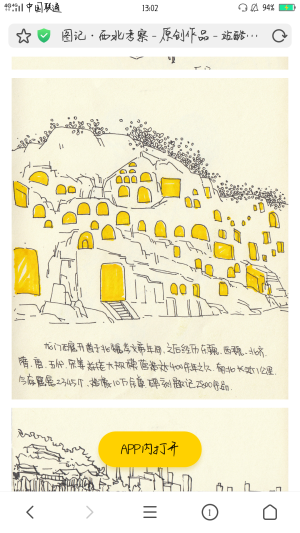 中国联通
13:02
94%
图记·西北考察-原创作品-站酷...
龙门石窟开凿于北魏孝文帝年间,之后经历东魏、西魏、北齐、
隋、唐、五代、宋等连续大规模营造达400余年之久,南北长达1公里,
今存窟龛2345个,造像10万余尊,碑刻题记2800余品。
APP内打开